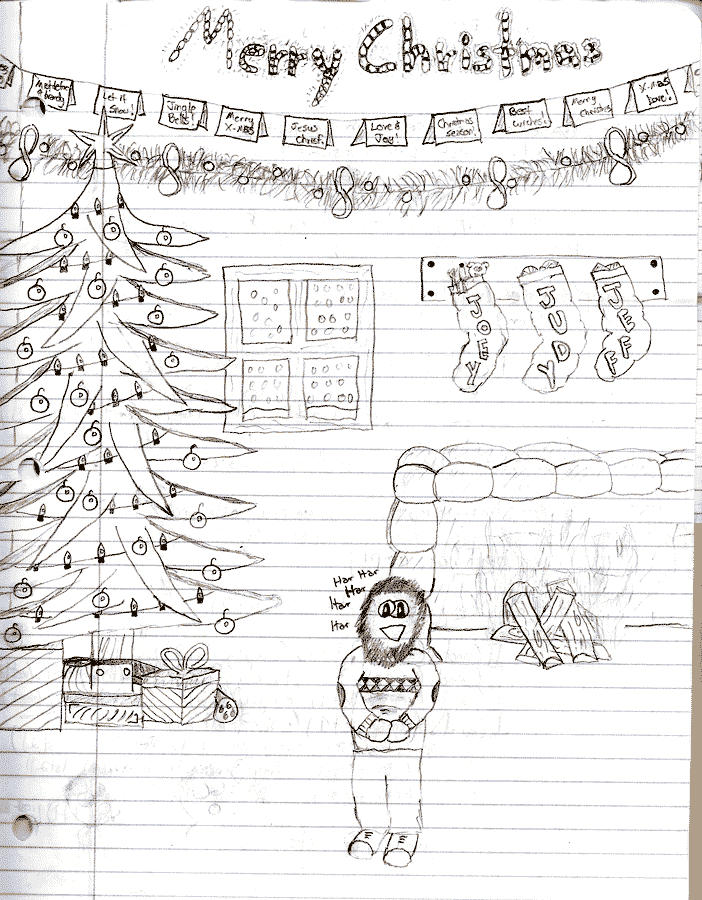 Merry Christmas
Let it Snow!
Jingle Bells!
Merry X-MAS
Jesus Christ!
Love & Joy!
Christmas season!
Best wishes!
Merry Christmas
X-MAS Love!
JOEY
JUDY
JEFF
Har Har
Har
Har
Har